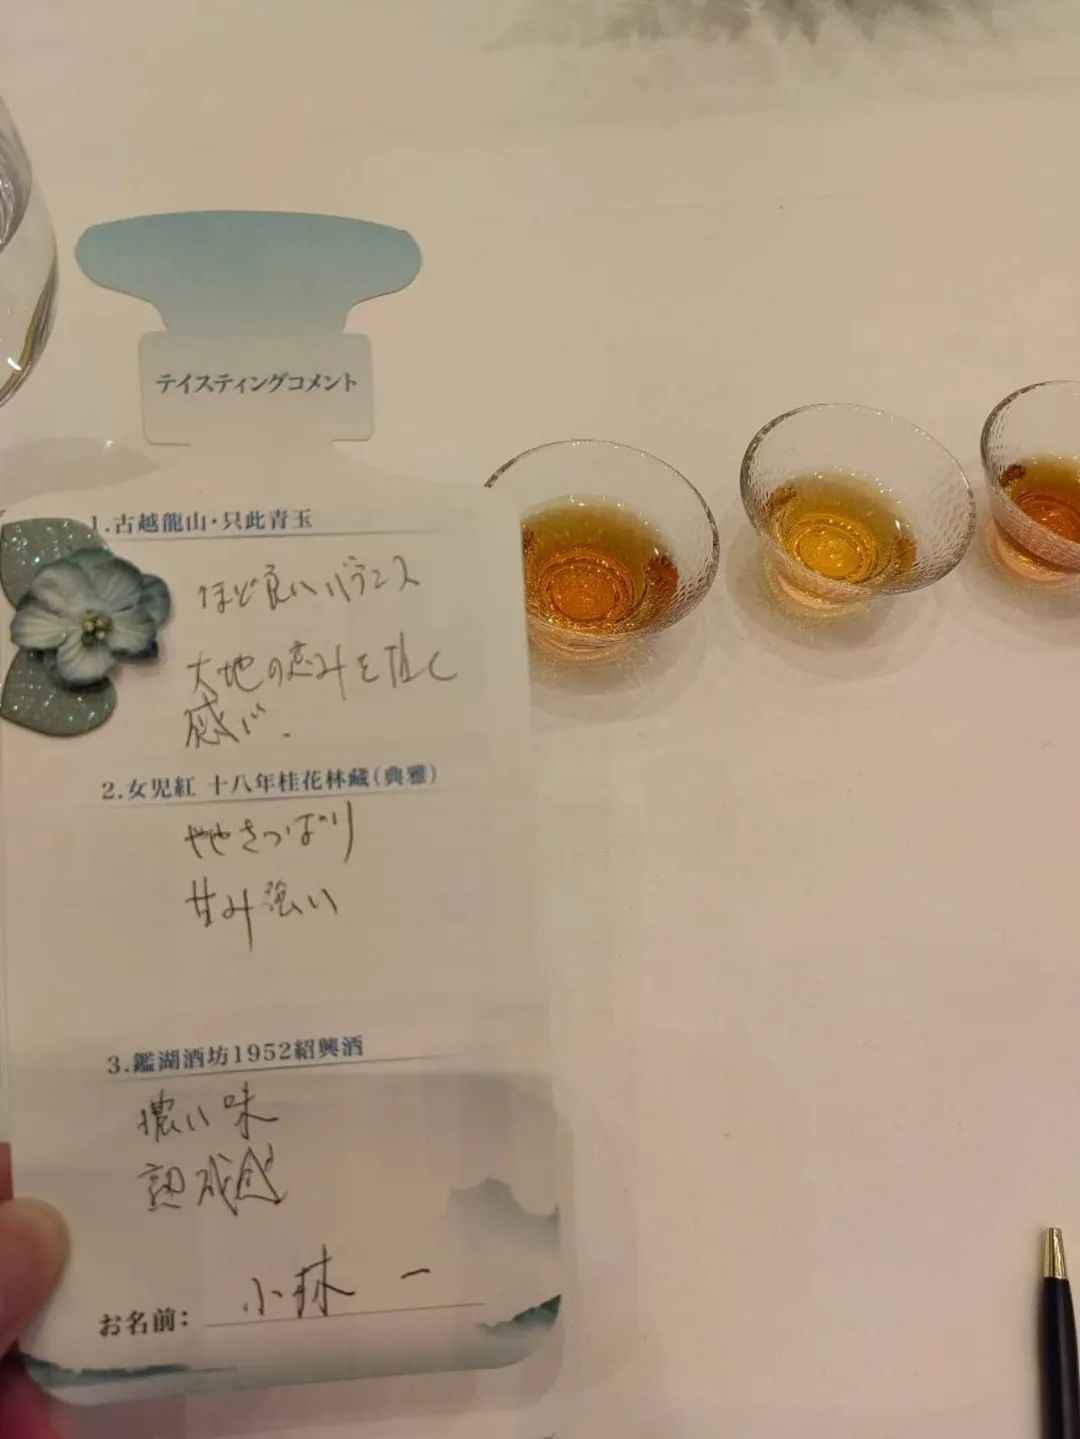 テイスティングコメント
1.古越龍山・只此青玉
ほど良いバランス
大地の恵みを
感じ.
2.女児紅 十八年桂花林藏(典雅)
ややさっぱり
甘み強い
3.鑑湖酒坊1952紹興酒
濃い味
熟成感
お名前: 小林 一